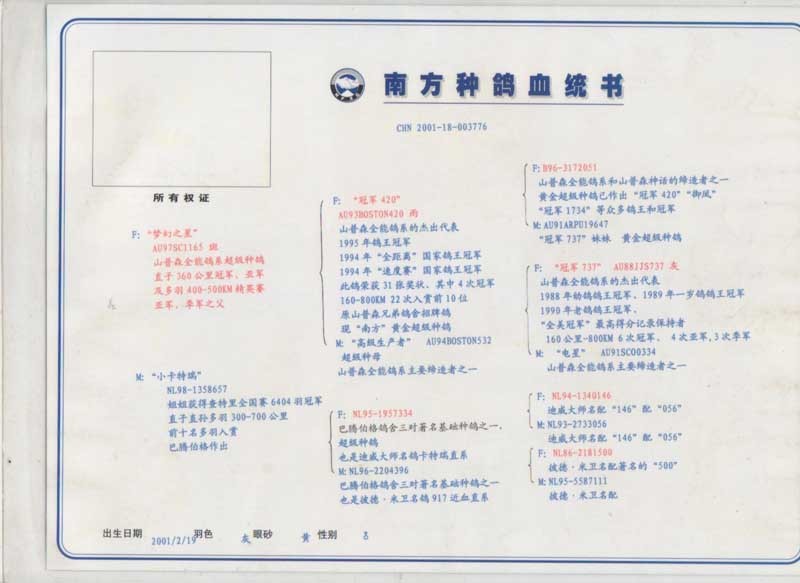 南方种鸽血统书
CHN 2001-18-003776
所有权证
F: “梦幻之星”
AU97SC1165 斑
山普森全能鸽系超级种鸽
直子360公里冠军、亚军
及多羽400-500KM精英赛
亚军、季军之父
M: “小卡特瑞”
NL98-1358657
姐姐获得查特里全国赛6404羽冠军
直子直孙多羽300-700公里
前十名多羽入赏
巴腾伯格作出
F: “冠军420”
AU93BOSTON420 雨
山普森全能鸽系的杰出代表
1995年鸽王冠军
1994年“全距离”国家鸽王冠军
1994年“速度赛”国家鸽王冠军
此鸽荣获31张奖状、其中4次冠军
160-800KM 22次入赏前10位
原山普森兄弟鸽舍招牌鸽
现“南方”黄金超级种鸽
M: “高级生产者” AU94BOSTON532
超级种母
山普森全能鸽系主要缔造者之一
F: NL95-1957334
巴腾伯格鸽舍三对著名基础种鸽之一、
超级种鸽
也是迪威大师名鸽卡特瑞直系
M: NL96-2204396
巴腾伯格鸽舍三对著名基础种鸽之一
也是彼德·米卫名鸽917近血直系
F: B96-3172051
山普森全能鸽系和山普森神话的缔造者之一
黄金超级种鸽已作出“冠军420”“御风”
“冠军1734”等众多鸽王和冠军
M: AU91ARPU19647
“冠军737”妹妹 黄金超级种鸽
F: “冠军737” AU88JJS737 灰
山普森全能鸽系的杰出代表
1988年幼鸽鸽王冠军、1989年一岁鸽鸽王冠军
1990年老鸽鸽王冠军、
“全美冠军”最高得分记录保持者
160公里-800KM 6次冠军、 4次亚军,3次季军
M: “电星” AU91SCO0334
山普森全能鸽系主要缔造者之一
F: NL94-1340146
迪威大师名配“146”配“056”
M: NL93-2733056
迪威大师名配“146”配“056”
F: NL86-2181500
彼德·米卫名配著名的“500”
M: NL95-5587111
彼德·米卫名配
出生日期 2001/2/19 羽色 灰 眼砂 黄 性别 ♂